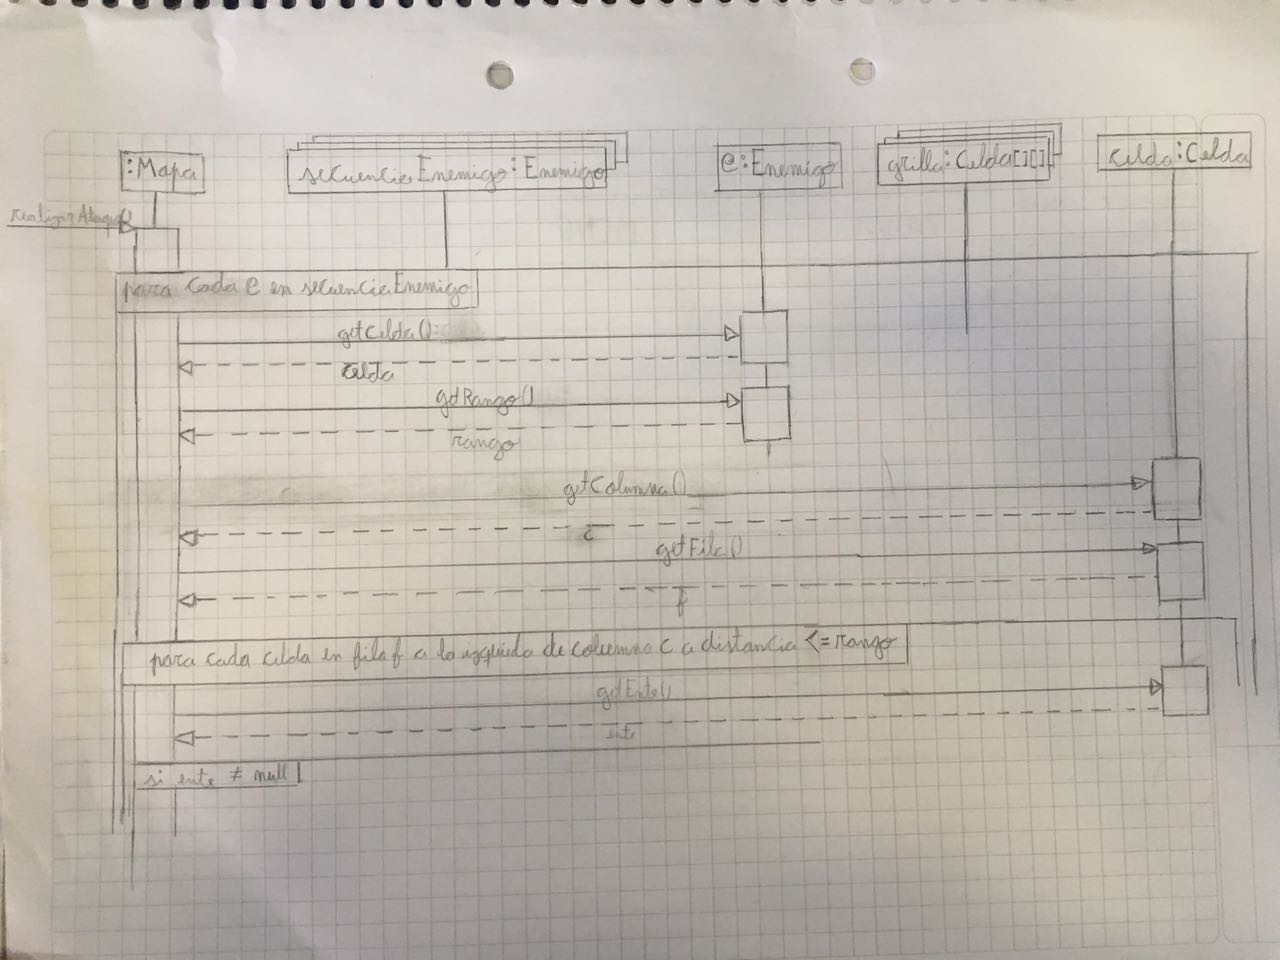 :Mapa
secuenciaEnemigo:Enemigo
e:Enemigo
grilla:Celda[][]
celda:Celda
realizarAtaque()
para cada e en secuenciaEnemigo
getCelda()
celda
getRango()
rango
getColumna()
c
getFila()
f
para cada celda en fila f a la izquierda de columna c a distancia <= rango
getEnte()
ente
si ente ≠ null